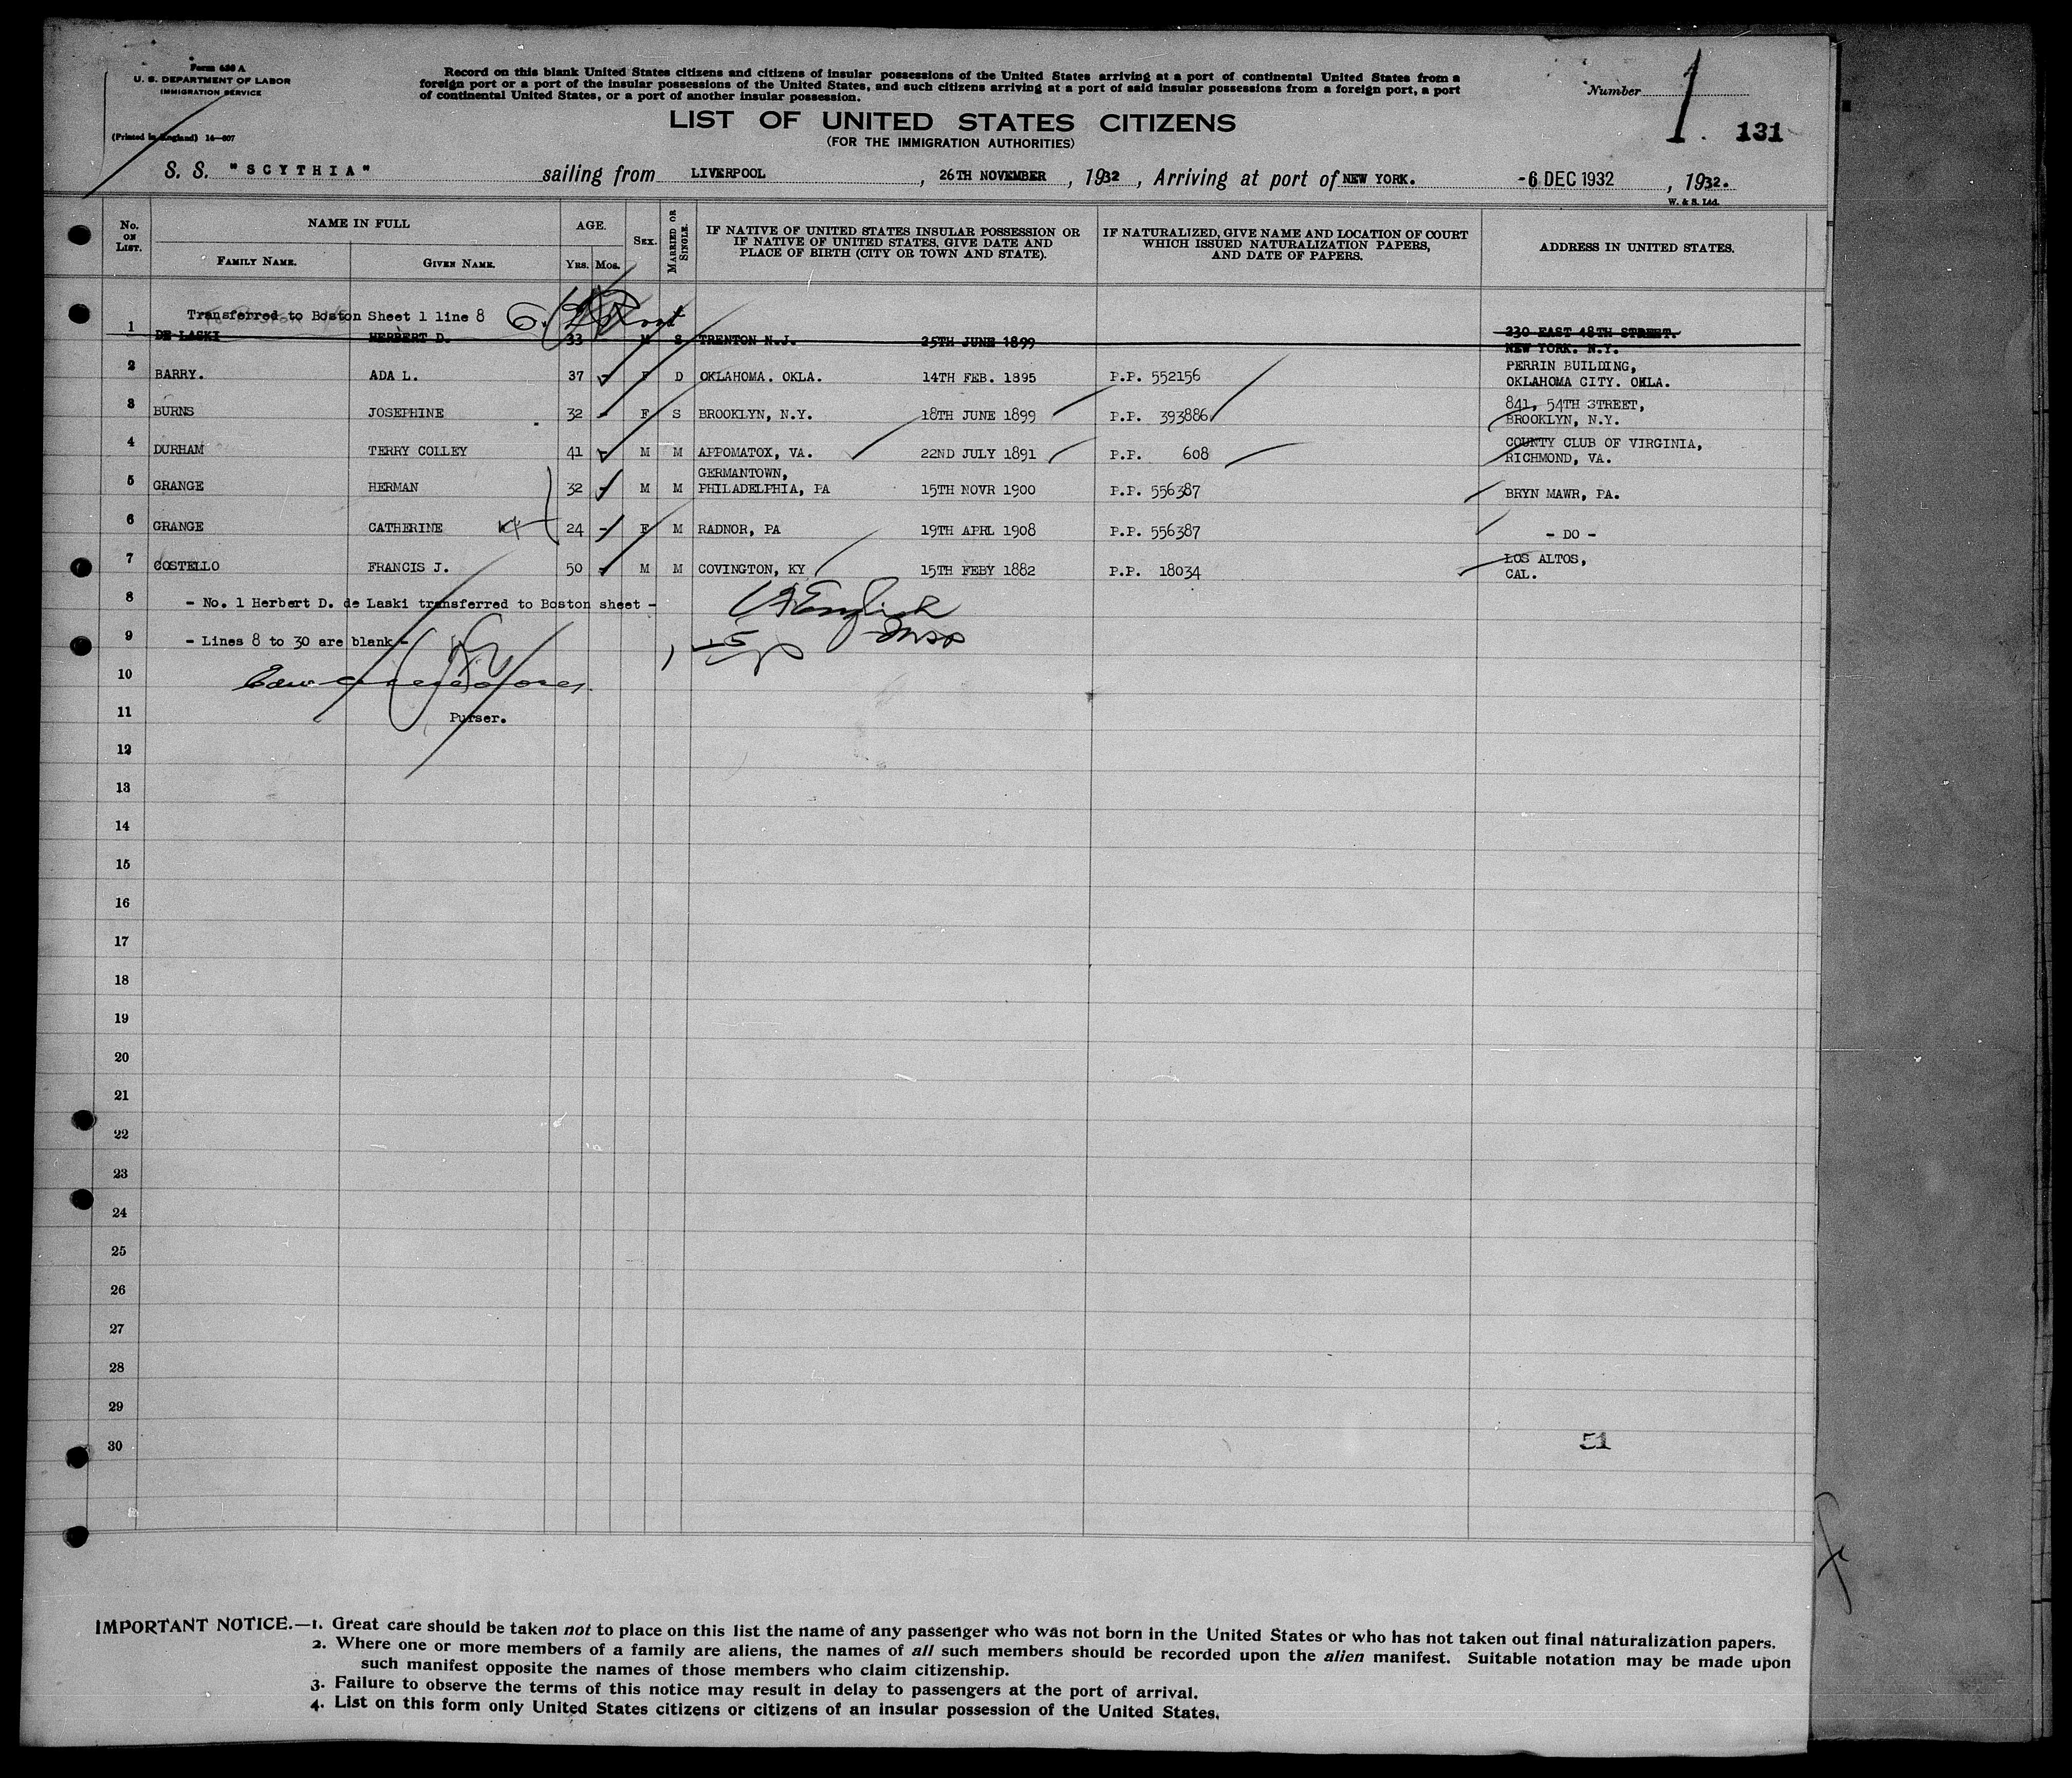 Form 630 A
U. S. DEPARTMENT OF LABOR
IMMIGRATION SERVICE
(Printed in England) 14—607
Record on this blank United States citizens and citizens of insular possessions of the United States arriving at a port of continental United States from a
foreign port or a port of the insular possessions of the United States, and such citizens arriving at a port of said insular possessions from a foreign port, a port
of continental United States, or a port of another insular possession.
Number 1
131
LIST OF UNITED STATES CITIZENS
(FOR THE IMMIGRATION AUTHORITIES)
S. S. "SCYTHIA" sailing from LIVERPOOL, 26TH NOVEMBER, 1932, Arriving at port of NEW YORK. -6 DEC 1932, 1932.
W. & S. Ltd.
No. ON LIST. NAME IN FULL FAMILY NAME. GIVEN NAME. AGE. YRS. MOS. SEX. MARRIED OR SINGLE. IF NATIVE OF UNITED STATES INSULAR POSSESSION OR IF NATIVE OF UNITED STATES, GIVE DATE AND PLACE OF BIRTH (CITY OR TOWN AND STATE). IF NATURALIZED, GIVE NAME AND LOCATION OF COURT WHICH ISSUED NATURALIZATION PAPERS, AND DATE OF PAPERS. ADDRESS IN UNITED STATES.
Transferred to Boston Sheet 1 line 8
1 DE LASKI HERBERT D. 33 M S TRENTON N.J. 25TH JUNE 1899 230 EAST 48TH STREET.
NEW YORK. N.Y.
2 BARRY. ADA L. 37 - F D OKLAHOMA. OKLA. 14TH FEB. 1895 P.P. 552156 PERRIN BUILDING,
OKLAHOMA CITY. OKLA.
3 BURNS JOSEPHINE 32 - F S BROOKLYN, N.Y. 18TH JUNE 1899 P.P. 393886 841, 54TH STREET,
BROOKLYN, N.Y.
4 DURHAM TERRY COLLEY 41 - M M APPOMATOX, VA. 22ND JULY 1891 P.P. 608 COUNTY CLUB OF VIRGINIA,
RICHMOND, VA.
GERMANTOWN,
5 GRANGE HERMAN 32 - M M PHILADELPHIA, PA 15TH NOVR 1900 P.P. 556387 BRYN MAWR, PA.
6 GRANGE CATHERINE 24 - F M RADNOR, PA 19TH APRL 1908 P.P. 556387 - DO -
7 COSTELLO FRANCIS J. 50 - M M COVINGTON, KY 15TH FEBY 1882 P.P. 18034 LOS ALTOS,
CAL.
8 - No. 1 Herbert D. de Laski transferred to Boston sheet -
9 - Lines 8 to 30 are blank -
10
11 Purser.
12
13
14
15
16
17
18
19
20
21
22
23
24
25
26
27
28
29
30 51
IMPORTANT NOTICE.—1. Great care should be taken not to place on this list the name of any passenger who was not born in the United States or who has not taken out final naturalization papers.
2. Where one or more members of a family are aliens, the names of all such members should be recorded upon the alien manifest. Suitable notation may be made upon
such manifest opposite the names of those members who claim citizenship.
3. Failure to observe the terms of this notice may result in delay to passengers at the port of arrival.
4. List on this form only United States citizens or citizens of an insular possession of the United States.